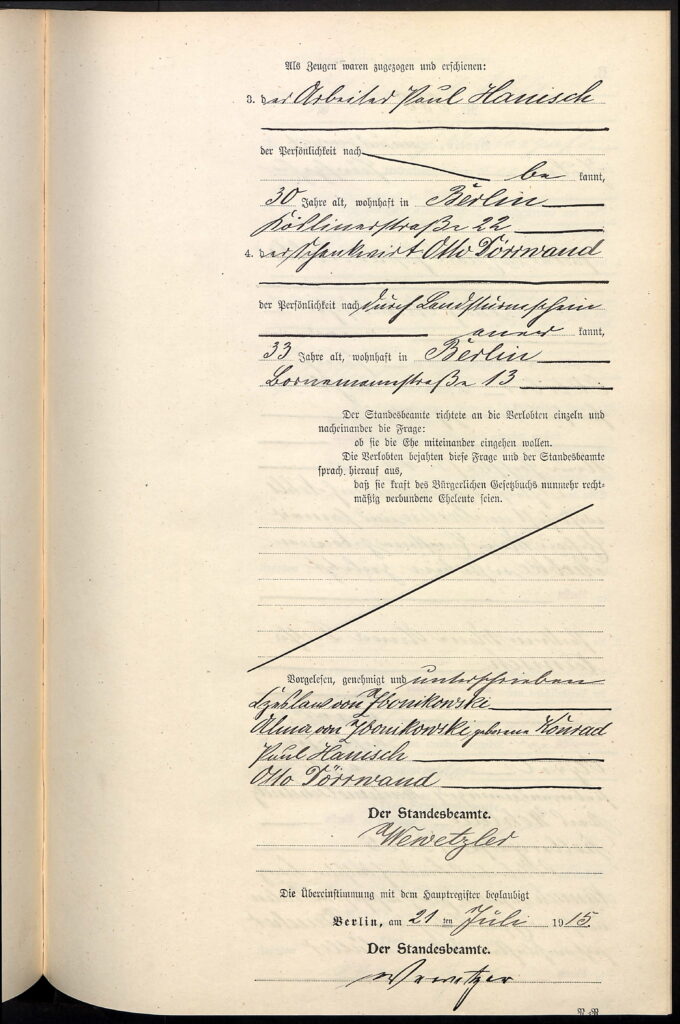 Als Zeugen waren zugezogen und erschienen:
3. der Arbeiter Paul Hanisch
der Persönlichkeit nach
be kannt,
30 Jahre alt, wohnhaft in Berlin
Köslinerstraße 22
4. der Schankwirt Otto Dörrwand
der Persönlichkeit nach durch Landsturmschein
aner kannt,
33 Jahre alt, wohnhaft in Berlin
Bornemannstraße 13
Der Standesbeamte richtete an die Verlobten einzeln und
nacheinander die Frage:
ob sie die Ehe miteinander eingehen wollen.
Die Verlobten bejahten diese Frage und der Standesbeamte
sprach hierauf aus,
daß sie kraft des Bürgerlichen Gesetzbuchs nunmehr recht-
mäßig verbundene Eheleute seien.
Vorgelesen, genehmigt und unterschrieben
Czeslaw von Zbonikowski
Alma von Zbonikowski geborene Konrad
Paul Hanisch
Otto Dörrwand
Der Standesbeamte.
Wewetzer
Die Übereinstimmung mit dem Hauptregister beglaubigt
Berlin, am 21 ten Juli 1915.
Der Standesbeamte.
Wewetzer